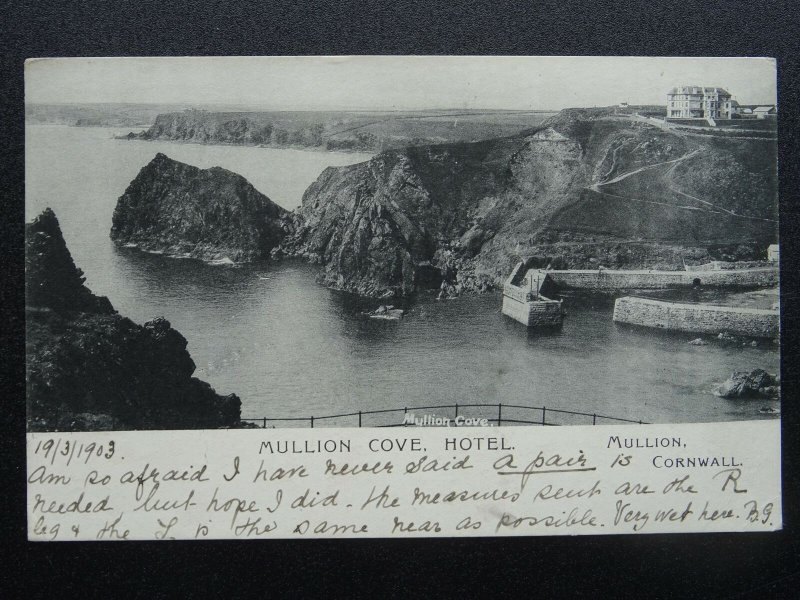 Mullion Cove.
MULLION COVE, HOTEL.
MULLION,
CORNWALL.
19/3/1903.
Am so afraid I have never said a pair is
needed, but hope I did. the measures sent are the R
leg & the L is the same near as possible. Very wet here. B.G.